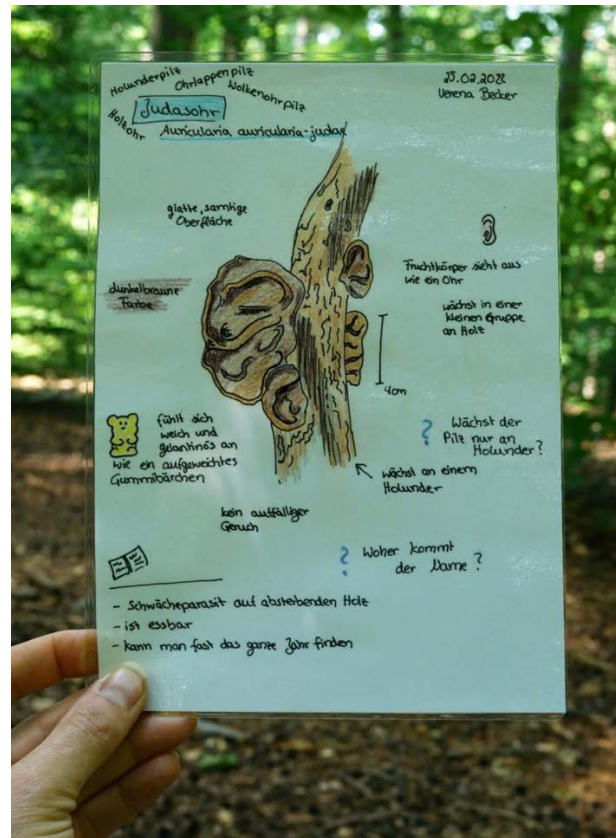 Holunderpilz
Ohrlappenpilz
Wolkenohrpilz
Holzohr
Judasohr
Auricularia auricularia-judae
25.02.2022
Verena Becker
glatte, samtige
Oberfläche
dunkelbraune
Farbe
Fruchtkörper sieht aus
wie ein Ohr
wächst in einer
kleinen Gruppe
an Holz
4cm
fühlt sich
weich und
gelantinös an
wie ein aufgeweichtes
Gummibärchen
? Wächst der
Pilz nur an
Holunder?
wächst an einem
Holunder
kein auffälliger
Geruch
? Woher kommt
der Name?
- Schwächeparasit auf absterbenden Holz
- ist essbar
- kann man fast das ganze Jahr finden